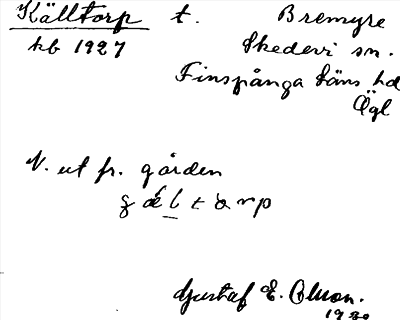 Källtorp t. Bremyre
kb 1927 Skedevi sn.
Finspånga läns hd
Ögl
N. ut fr. gården
Gustaf E. Olsson.